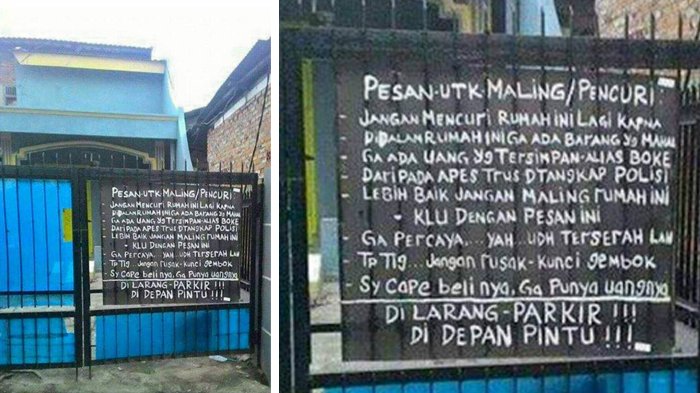 PESAN-UTK-MALING/PENCURI:
- JANGAN MENCURI RUMAH INI LAGI KARNA
DIDALAN RUMAH INI GA ADA BARANG YG MAHAL
GA ADA UANG YG TERSIMPAN-ALIAS BOKE
DARI PADA APES TRUS DTANGKAP POLISI
LEBIH BAIK JANGAN MALING RUMAH INI
- KLU DENGAN PESAN INI
GA PERCAYA....YAH..UDH TERSERAH LAH
TP Tlg...Jangan rusak-kunci gembok
- Sy Cape beli nya. Ga Punya uangnya
DI LARANG-PARKIR !!!
DI DEPAN PINTU !!!
PESAN-UTK-MALING/PENCURI:
- JANGAN MENCURI RUMAH INI LAGI KARNA
DIDALAN RUMAH INI GA ADA BARANG YG MAHAL
GA ADA UANG YG TERSIMPAN-ALIAS BOKE
DARI PADA APES TRUS DTANGKAP POLISI
LEBIH BAIK JANGAN MALING RUMAH INI
- KLU DENGAN PESAN INI
GA PERCAYA....YAH..UDH TERSERAH LAH
TP Tlg...Jangan rusak-kunci gembok
- Sy Cape beli nya. Ga Punya uangnya
DI LARANG-PARKIR !!!
DI DEPAN PINTU !!!